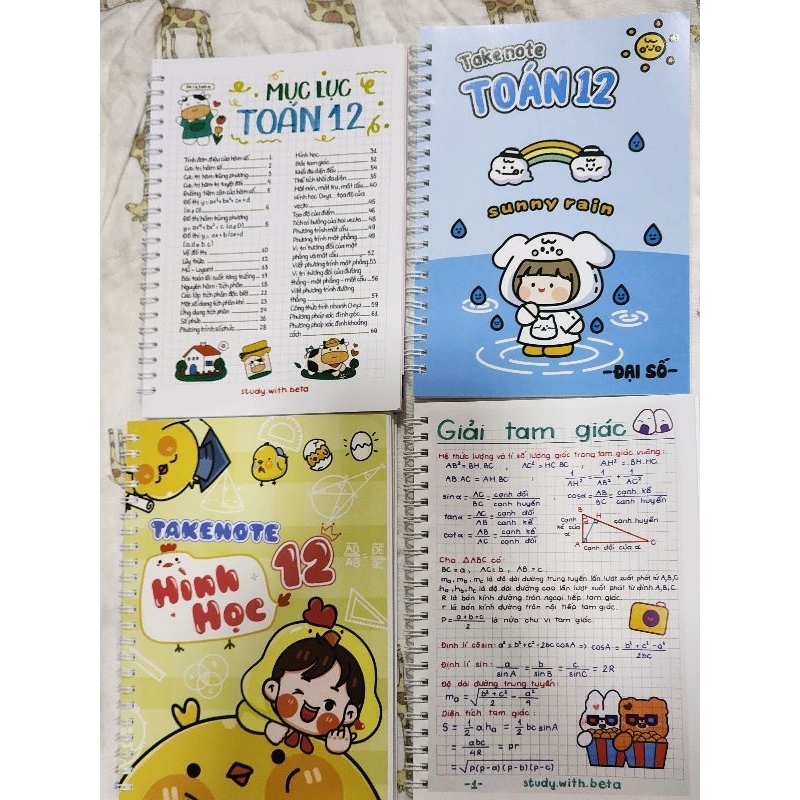 MỤC LỤC
TOÁN 12
Tính đơn điệu của hàm số 1
Cực trị hàm số 2
Cực trị hàm trùng phương 3
Cực trị hàm trị tuyệt đối 4
Đường tiệm cận của hàm số 5
Đồ thị y = ax³+bx²+cx+d
(a≠0) 6
Đồ thị hàm trùng phương
y = ax⁴+bx²+c (a≠0) 8
Đồ thị y = ax+b/cx+d
Vẽ đồ thị 10
Lũy thừa 11
Mũ - Logarit 12
Bài toán lãi suất tăng trưởng 17
Nguyên hàm - Tích phân 18
Các lớp tích phân đặc biệt 21
Một số dạng tích phân khó 23
Ứng dụng tích phân 24
Số phức 26
Phương trình số phức 28
Hình học 31
Giải tam giác 32
Khối đa diện đều 34
Thể tích khối đa diện 35
Mặt nón, mặt trụ, mặt cầu 40
Hình học Oxyz - tọa độ của
vecto 45
Tọa độ của điểm 46
Tích có hướng của hai vecto 48
Phương trình mặt cầu 49
Phương trình mặt phẳng 49
Vị trí tương đối của mặt
phẳng và mặt cầu 52
Viết phương trình mặt phẳng 53
Vị trí tương đối của đường
thẳng - mặt phẳng - mặt cầu 56
Viết phương trình đường
thẳng 57
Công thức tính nhanh Oxyz 59
Phương pháp xác định góc 61
Phương pháp xác định khoảng
cách 68
study.with.beta
Take note
TOÁN 12
sunny rain
-ĐẠI SỐ-
TAKENOTE
Hình
Học
12
AD/AB = DE/BC
Giải tam giác
Hệ thức lượng và tỉ số lượng giác trong tam giác vuông:
AB² = BH.BC , AC² = HC.BC , AH² = BH.HC
AB.AC = AH.BC ; 1/AH² = 1/AB² + 1/AC²
sinα = AC/BC = cạnh đối/cạnh huyền ; cosα = AB/BC = cạnh kề/cạnh huyền
tanα = AC/AB = cạnh đối/cạnh kề
cotα = AB/AC = cạnh kề/cạnh đối
B
H
cạnh kề của α
cạnh huyền
A
C
cạnh đối của α
Cho △ABC có:
BC = a , AC = b , AB = c
mₐ, m_b, m_c là độ dài đường trung tuyến lần lượt xuất phát từ A,B,C
hₐ, h_b, h_c là độ dài đường cao lần lượt xuất phát từ đỉnh A,B,C
R là bán kính đường tròn ngoại tiếp tam giác.
r là bán kính đường tròn nội tiếp tam giác.
P = a+b+c/2 là nửa chu vi tam giác.
Định lí côsin: a² = b²+c²-2bc cosA ⇒ cosA = b²+c²-a²/2bc
Định lí sin: a/sinA = b/sinB = c/sinC = 2R
Độ dài đường trung tuyến:
mₐ = √(b²+c²/2 - a²/4)
Diện tích tam giác:
S = 1/2 a.hₐ = 1/2 bc sinA
= abc/4R = pr
= √p(p-a)(p-b)(p-c)
-1-
study.with.beta